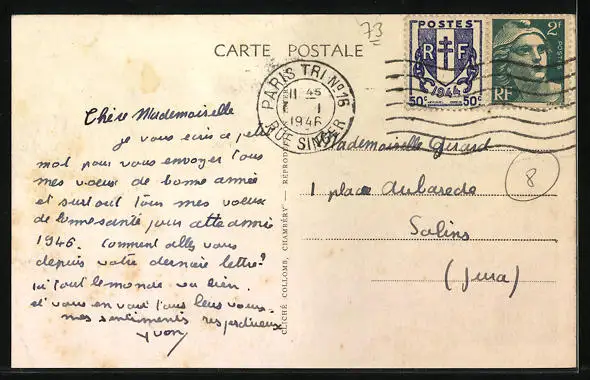 73
CARTE POSTALE
POSTES
RF
1944
50c 50c
2F
POSTES
RF
PARIS TRI No 16
11 45
1
1946
RUE SINGER
Chère Mademoiselle
je vous ecris ce petit
mot pour vous envoyer tous
mes voeux de bonne année
et surtout tous mes voeux
de bonne santé pour cette année
1946. Comment allez vous
depuis votre dernière lettre?
ici tout le monde va bien.
et vous en voie tous leurs voeux.
mes sentiments respectueux
Yvon
CLICHÉ COLLOMB, CHAMBÉRY — REPROD
Mademoiselle Girard
1 place Aubarede
Salins
(Jura)
8